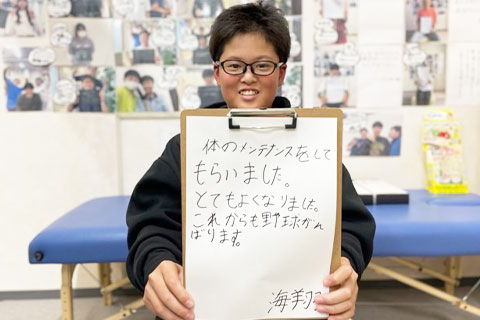 体のメンテナンスをして
もらいました。
とてもよくなりました。
これからも野球がん
ばります。
海翔